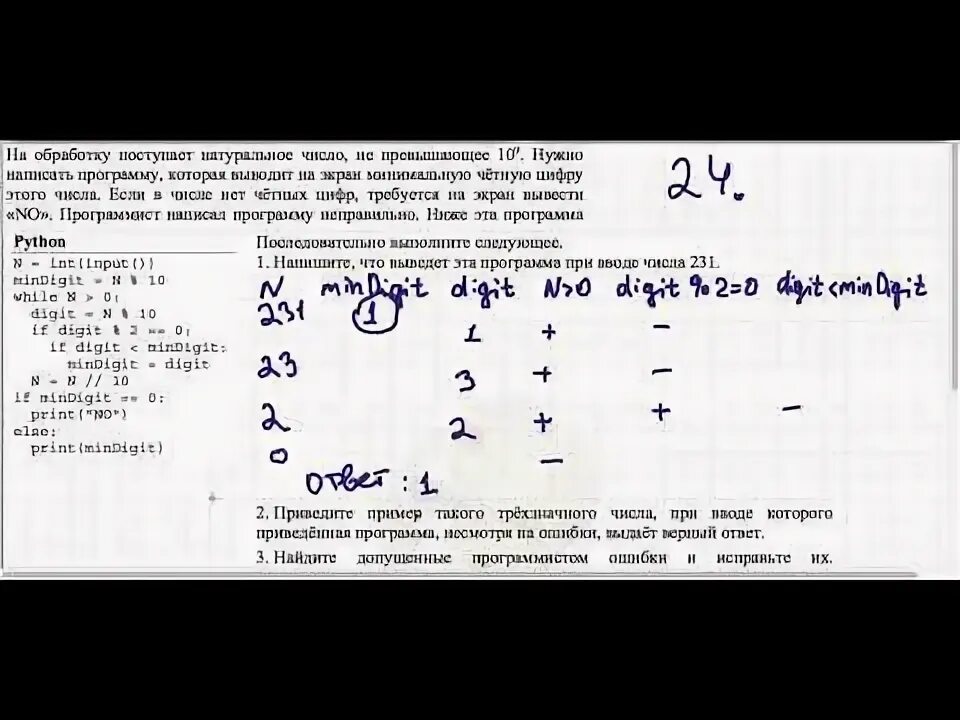 На обработку поступает натуральное число, не превышающее 10⁹. Нужно
написать программу, которая выводит на экран минимальную чётную цифру
этого числа. Если в числе нет чётных цифр, требуется на экран вывести
«NO». Программист написал программу неправильно. Ниже эта программа
24.
Python
N = int(input())
minDigit = N % 10
while N > 0:
digit = N % 10
if digit % 2 == 0:
if digit < minDigit:
minDigit = digit
N = N // 10
if minDigit == 0:
print("NO")
else:
print(minDigit)
Последовательно выполните следующее.
1. Напишите, что выведет эта программа при вводе числа 231.
N minDigit digit N>0 digit%2=0 digit<minDigit
231 1
1 + -
23 3 + -
2 2 + + -
0 -
Ответ: 1
2. Приведите пример такого трёхзначного числа, при вводе которого
приведённая программа, несмотря на ошибки, выдаёт верный ответ.
3. Найдите допущенные программистом ошибки и исправьте их.